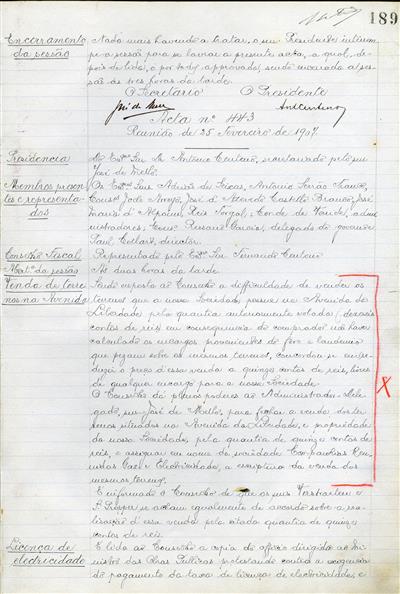 189
Encerramento da sessão
Nada mais havendo a tratar, o snr. Presidente interrompe a sessão para se lavrar a presente acta, a qual, depois de lida, é por todos approvada, sendo encerrada a sessão ás tres horas da tarde.
O Secretario O Presidente
José de Mello
Acta nº 443
Reunião de 25 Fevereiro de 1907
Presidencia
snr. Antonio Centeno, secretariado pelo snr.
José de Mello.
Membros presentes e representados
Os snrs. Antonio
José d'Azevedo Castello Branco, José
Reis Torgal, Conde de
administradores; delegado do governo
Paul director.
Conselho Fiscal
Representado pelo snr. Fernando
da sessão
As duas horas da tarde
Venda de terrenos na Avenida
Sendo exposto ao Conselho a difficuldade de vender os
terrenos que a nossa Sociedade possue na Avenida da
Liberdade pela quantia anteriormente votada, dezaseis
contos de reis, em consequencia do comprador não haver
calculado os encargos provenientes de fôro e laudemio
que pezam sobre os mesmos terrenos, concordou-se em reduzir
o preço d'essa venda a quinze contos de reis, livres
de qualquer encargo para a nossa Sociedade.
O Conselho dá plenos poderes ao Administrador Delegado,
snr. José de Mello, para fechar a venda dos terrenos
situados na Avenida da Liberdade, e propriedade
da nossa Sociedade, pela quantia de quinze contos de
reis, e assignar em nome da sociedade Companhias Reunidas
Gaz e Electricidade, a escriptura da venda dos
mesmos terrenos.
É informado o Conselho de que os snrs.
se acham egualmente de accordo sobre a realização
d'essa venda pela citada quantia de quinze
contos de reis.
Licença de electricidade
É lida ao Conselho a copia do officio dirigido ao Ministro
das Obras Publicas protestando contra a exigencia
do pagamento da taxa de licença de electricidade, e